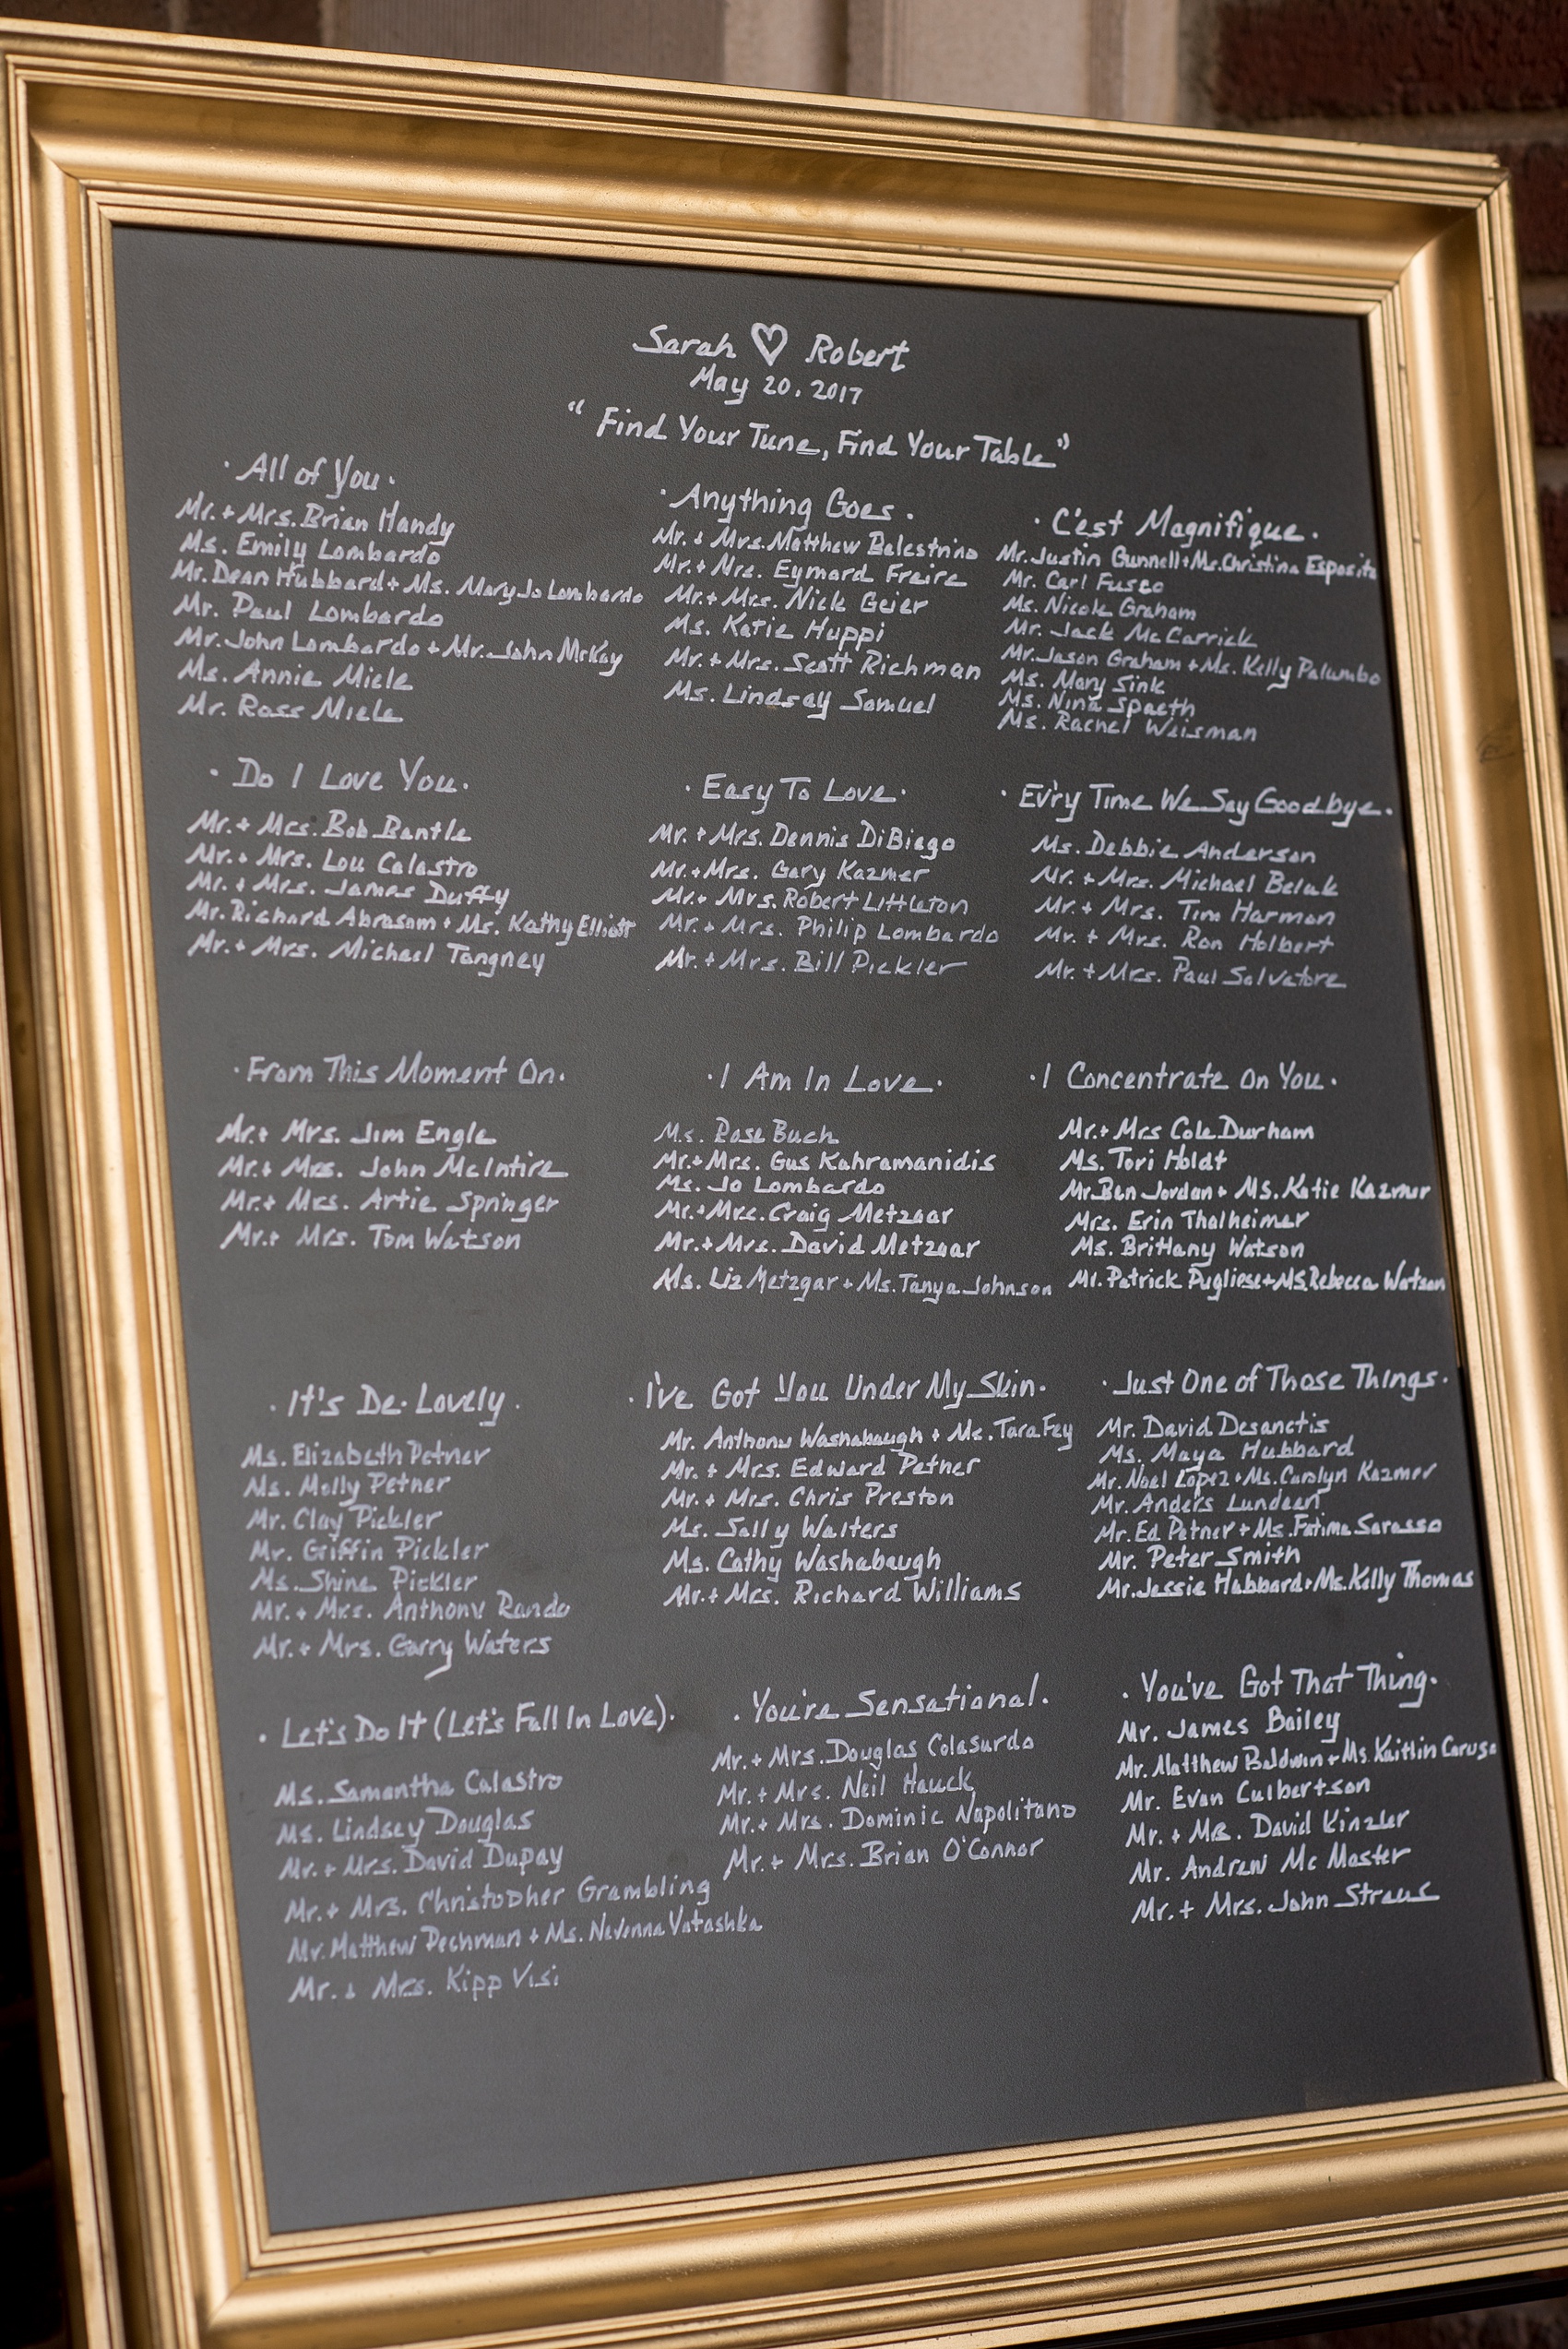 Sarah ♡ Robert
May 20, 2017
"Find Your Tune, Find Your Table"
· All of You ·
Mr. + Mrs. Brian Handy
Ms. Emily Lombardo
Mr. Dean Hubbard + Ms. Mary Jo Lombardo
Mr. Paul Lombardo
Mr. John Lombardo + Mr. John McKay
Ms. Annie Miele
Mr. Ross Miele
· Anything Goes ·
Mr. + Mrs. Matthew Balestrino
Mr. + Mrs. Eymard Freire
Mr. + Mrs. Nick Geier
Ms. Katie Huppi
Mr. + Mrs. Scott Richman
Ms. Lindsay Samuel
· C'est Magnifique ·
Mr. Justin Gunnell + Ms. Christina Esposito
Mr. Carl Fusco
Ms. Nicole Graham
Mr. Jack McCarrick
Mr. Jason Graham + Ms. Kelly Palumbo
Ms. Mary Sink
Ms. Nina Spaeth
Ms. Rachel Weisman
· Do I Love You ·
Mr. + Mrs. Bob Bantle
Mr. + Mrs. Lou Calastro
Mr. + Mrs. James Duffy
Mr. Richard Abrasom + Ms. Kathy Elliott
Mr. + Mrs. Michael Tangney
· Easy To Love ·
Mr. + Mrs. Dennis DiBiago
Mr. + Mrs. Gary Kazmer
Mr. + Mrs. Robert Littleton
Mr. + Mrs. Philip Lombardo
Mr. + Mrs. Bill Pickler
· Ev'ry Time We Say Goodbye ·
Ms. Debbie Anderson
Mr. + Mrs. Michael Beluk
Mr. + Mrs. Tim Harmon
Mr. + Mrs. Ron Holbert
Mr. + Mrs. Paul Salvatore
· From This Moment On ·
Mr. + Mrs. Jim Engle
Mr. + Mrs. John McIntire
Mr. + Mrs. Artie Springer
Mr. + Mrs. Tom Watson
· I Am In Love ·
Ms. Rose Buch
Mr. + Mrs. Gus Kahramanidis
Ms. Jo Lombardo
Mr. + Mrs. Craig Metzgar
Mr. + Mrs. David Metzgar
Ms. Liz Metzgar + Ms. Tanya Johnson
· I Concentrate On You ·
Mr. + Mrs Cole Durham
Ms. Tori Holdt
Mr. Ben Jordan + Ms. Katie Kazmer
Mrs. Erin Thalheimer
Ms. Brittany Watson
Mr. Patrick Pugliese + Ms. Rebecca Watson
· It's De-Lovely ·
Ms. Elizabeth Petner
Ms. Molly Petner
Mr. Clay Pickler
Mr. Griffin Pickler
Ms. Shine Pickler
Mr. + Mrs. Anthony Rando
Mr. + Mrs. Garry Waters
· I've Got You Under My Skin ·
Mr. Anthony Washabaugh + Ms. Tara Fey
Mr. + Mrs. Edward Petner
Mr. + Mrs. Chris Preston
Ms. Sally Walters
Ms. Cathy Washabaugh
Mr. + Mrs. Richard Williams
· Just One of Those Things ·
Mr. David Desanctis
Ms. Maya Hubbard
Mr. Noel Lopez + Ms. Carolyn Kazmer
Mr. Anders Lundeen
Mr. Ed Petner + Ms. Fatima Sarasso
Mr. Peter Smith
Mr. Jessie Hubbard + Ms. Kelly Thomas
· Let's Do It (Let's Fall In Love) ·
Ms. Samantha Calastro
Ms. Lindsey Douglas
Mr. + Mrs. David Dupay
Mr. + Mrs. Christopher Grambling
Mr. Matthew Pechman + Ms. Nevenna Vatashka
Mr. + Mrs. Kipp Visi
· You're Sensational ·
Mr. + Mrs. Douglas Colasurdo
Mr. + Mrs. Neil Hauck
Mr. + Mrs. Dominic Napolitano
Mr. + Mrs. Brian O'Connor
· You've Got That Thing ·
Mr. James Bailey
Mr. Matthew Baldwin + Ms. Kaitlin Caruso
Mr. Evan Culbertson
Mr. + Mrs. David Kinzler
Mr. Andrew McMaster
Mr. + Mrs. John Straus